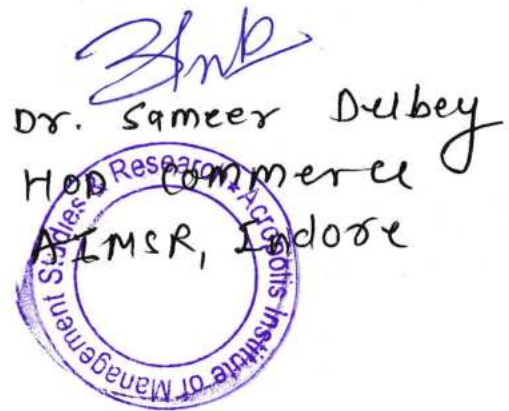 Dr. Sameer Dubey
HOD Commerce
AIMSR, Indore
Acropolis Institute of Management Studies & Research